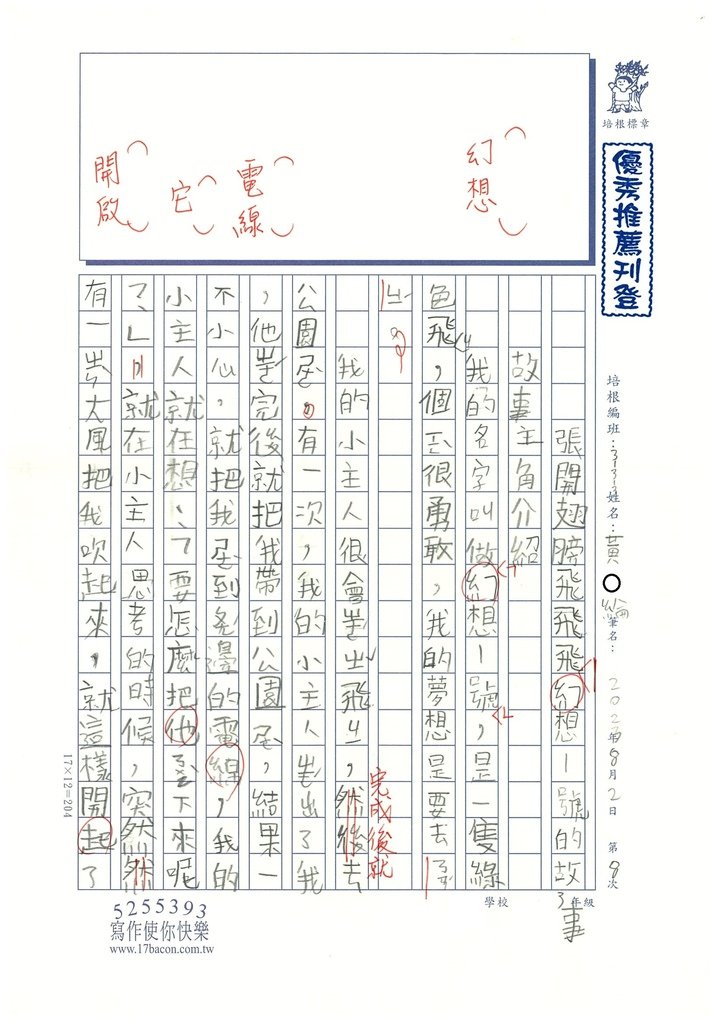 培根標章
優秀推薦刊登
培根編班：3133 姓名：黃○綸 筆名：
2023年8月2日 第8次
學校 3年級
幻想
電線
它
開啟
張開翅膀飛飛飛幻想一號的故事
故事主角介紹
我的名字叫做幻想一號，是一隻綠
色飛，個很勇敢，我的夢想是要去
我的小主人很會出飛，然後去
完成後就
公園。有一次，我的小主人出了我
，他完後就把我帶到公園，結果一
不小心，就把我到旁邊的電線，我的
小主人就在想：「要怎麼把他下來呢
？」就在小主人思考的時候，突然
有一大風把我吹起來，就這樣開起了
17×12=204
5255393
寫作使你快樂
www.17bacon.com.tw